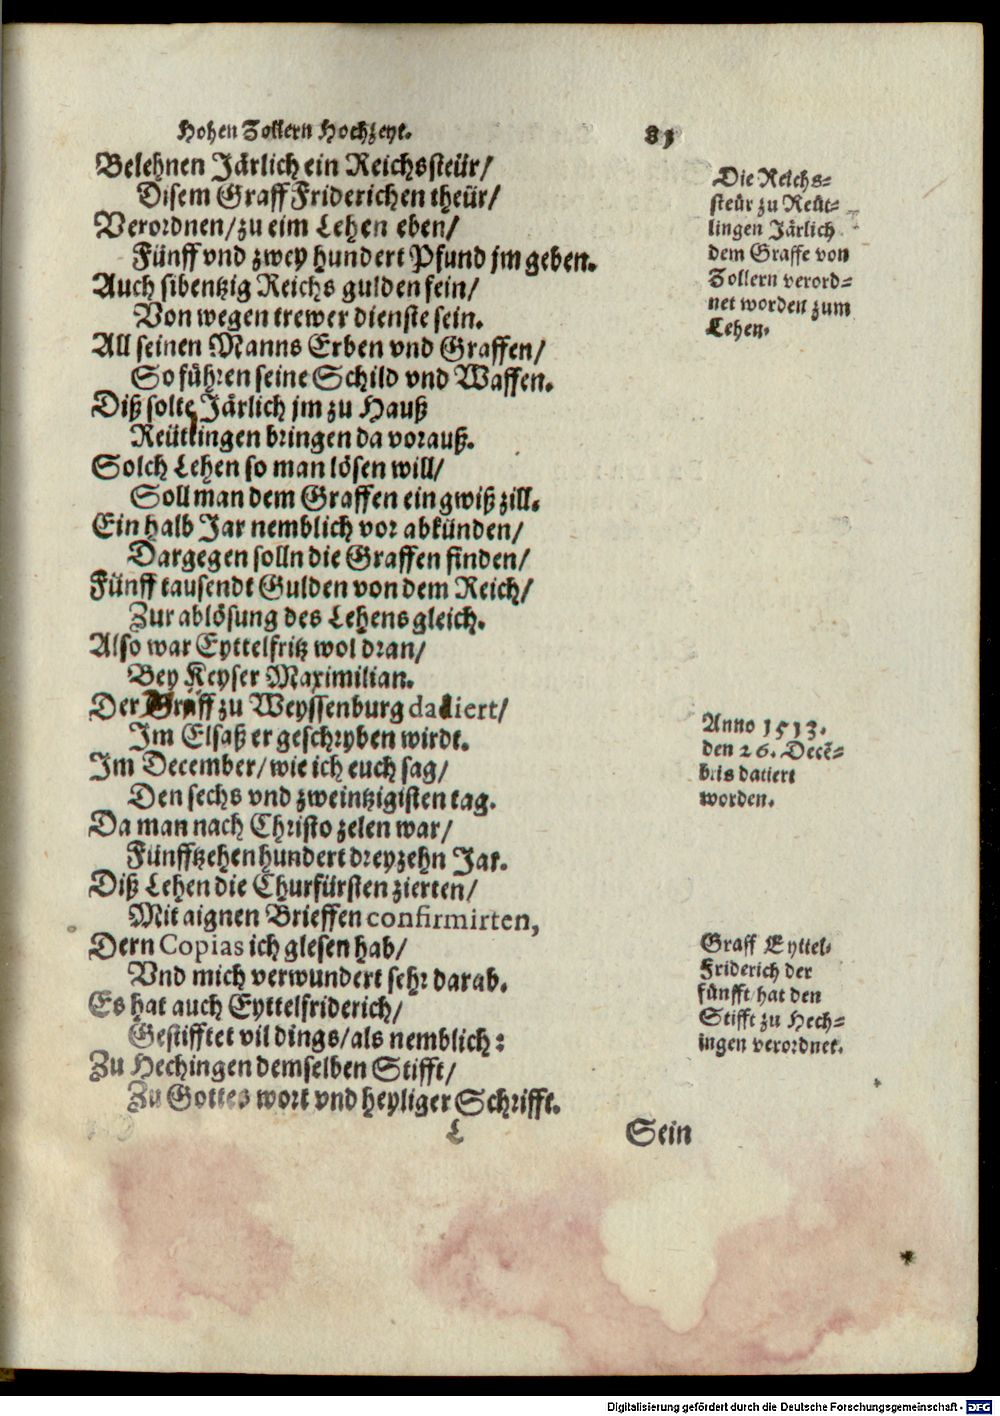 Hohen Zollern Hochzeyt. 81
Belehnen Järlich ein Reichssteür/
Disem Graff Friderichen theür/
Verordnen/zu eim Lehen eben/
Fünff vnd zwey hundert Pfund jm geben.
Auch sibentzig Reichs gulden fein/
Von wegen trewer dienste sein.
All seinen Manns Erben vnd Graffen/
So führen seine Schild vnd Waffen.
Diß solte Järlich jm zu Hauß
Reütlingen bringen da vorauß.
Solch Lehen so man lösen will/
Soll man dem Graffen ein gwiß zill.
Ein halb Jar nemblich vor abkünden/
Dargegen solln die Graffen finden/
Fünff tausendt Gulden von dem Reich/
Zur ablösung des Lehens gleich.
Also war Eyttelfritz wol dran/
Bey Keyser Maximilian.
Der zu Weyssenburg datiert/
Im Elsaß er geschryben wirdt.
Im December/wie ich euch sag/
Den sechs vnd zweintzigisten tag.
Da man nach Christo zelen war/
Fünfftzehen hundert dreyzehn Jar.
Diß Lehen die Churfürsten zierten/
Mit aignen Brieffen confirmirten,
Dern Copias ich glesen hab/
Vnd mich verwundert sehr darab.
Es hat auch Eyttelfriderich/
Gestifftet vil dings/als nemblich:
Zu Hechingen demselben Stifft/
Zu Gottes wort vnd heyliger Schrifft.
L Sein
Die Reichs=
steür zu Reüt=
lingen Järlich
dem Graffe von
Zollern verord=
net worden zum
Lehen.
Anno 1513.
den 26. Decē=
bris datiert
worden.
Graff Eyttel=
Friderich der
fünfft/hat den
Stifft zu Hech=
ingen verordnet.
Digitalisierung gefördert durch die Deutsche Forschungsgemeinschaft - DFG